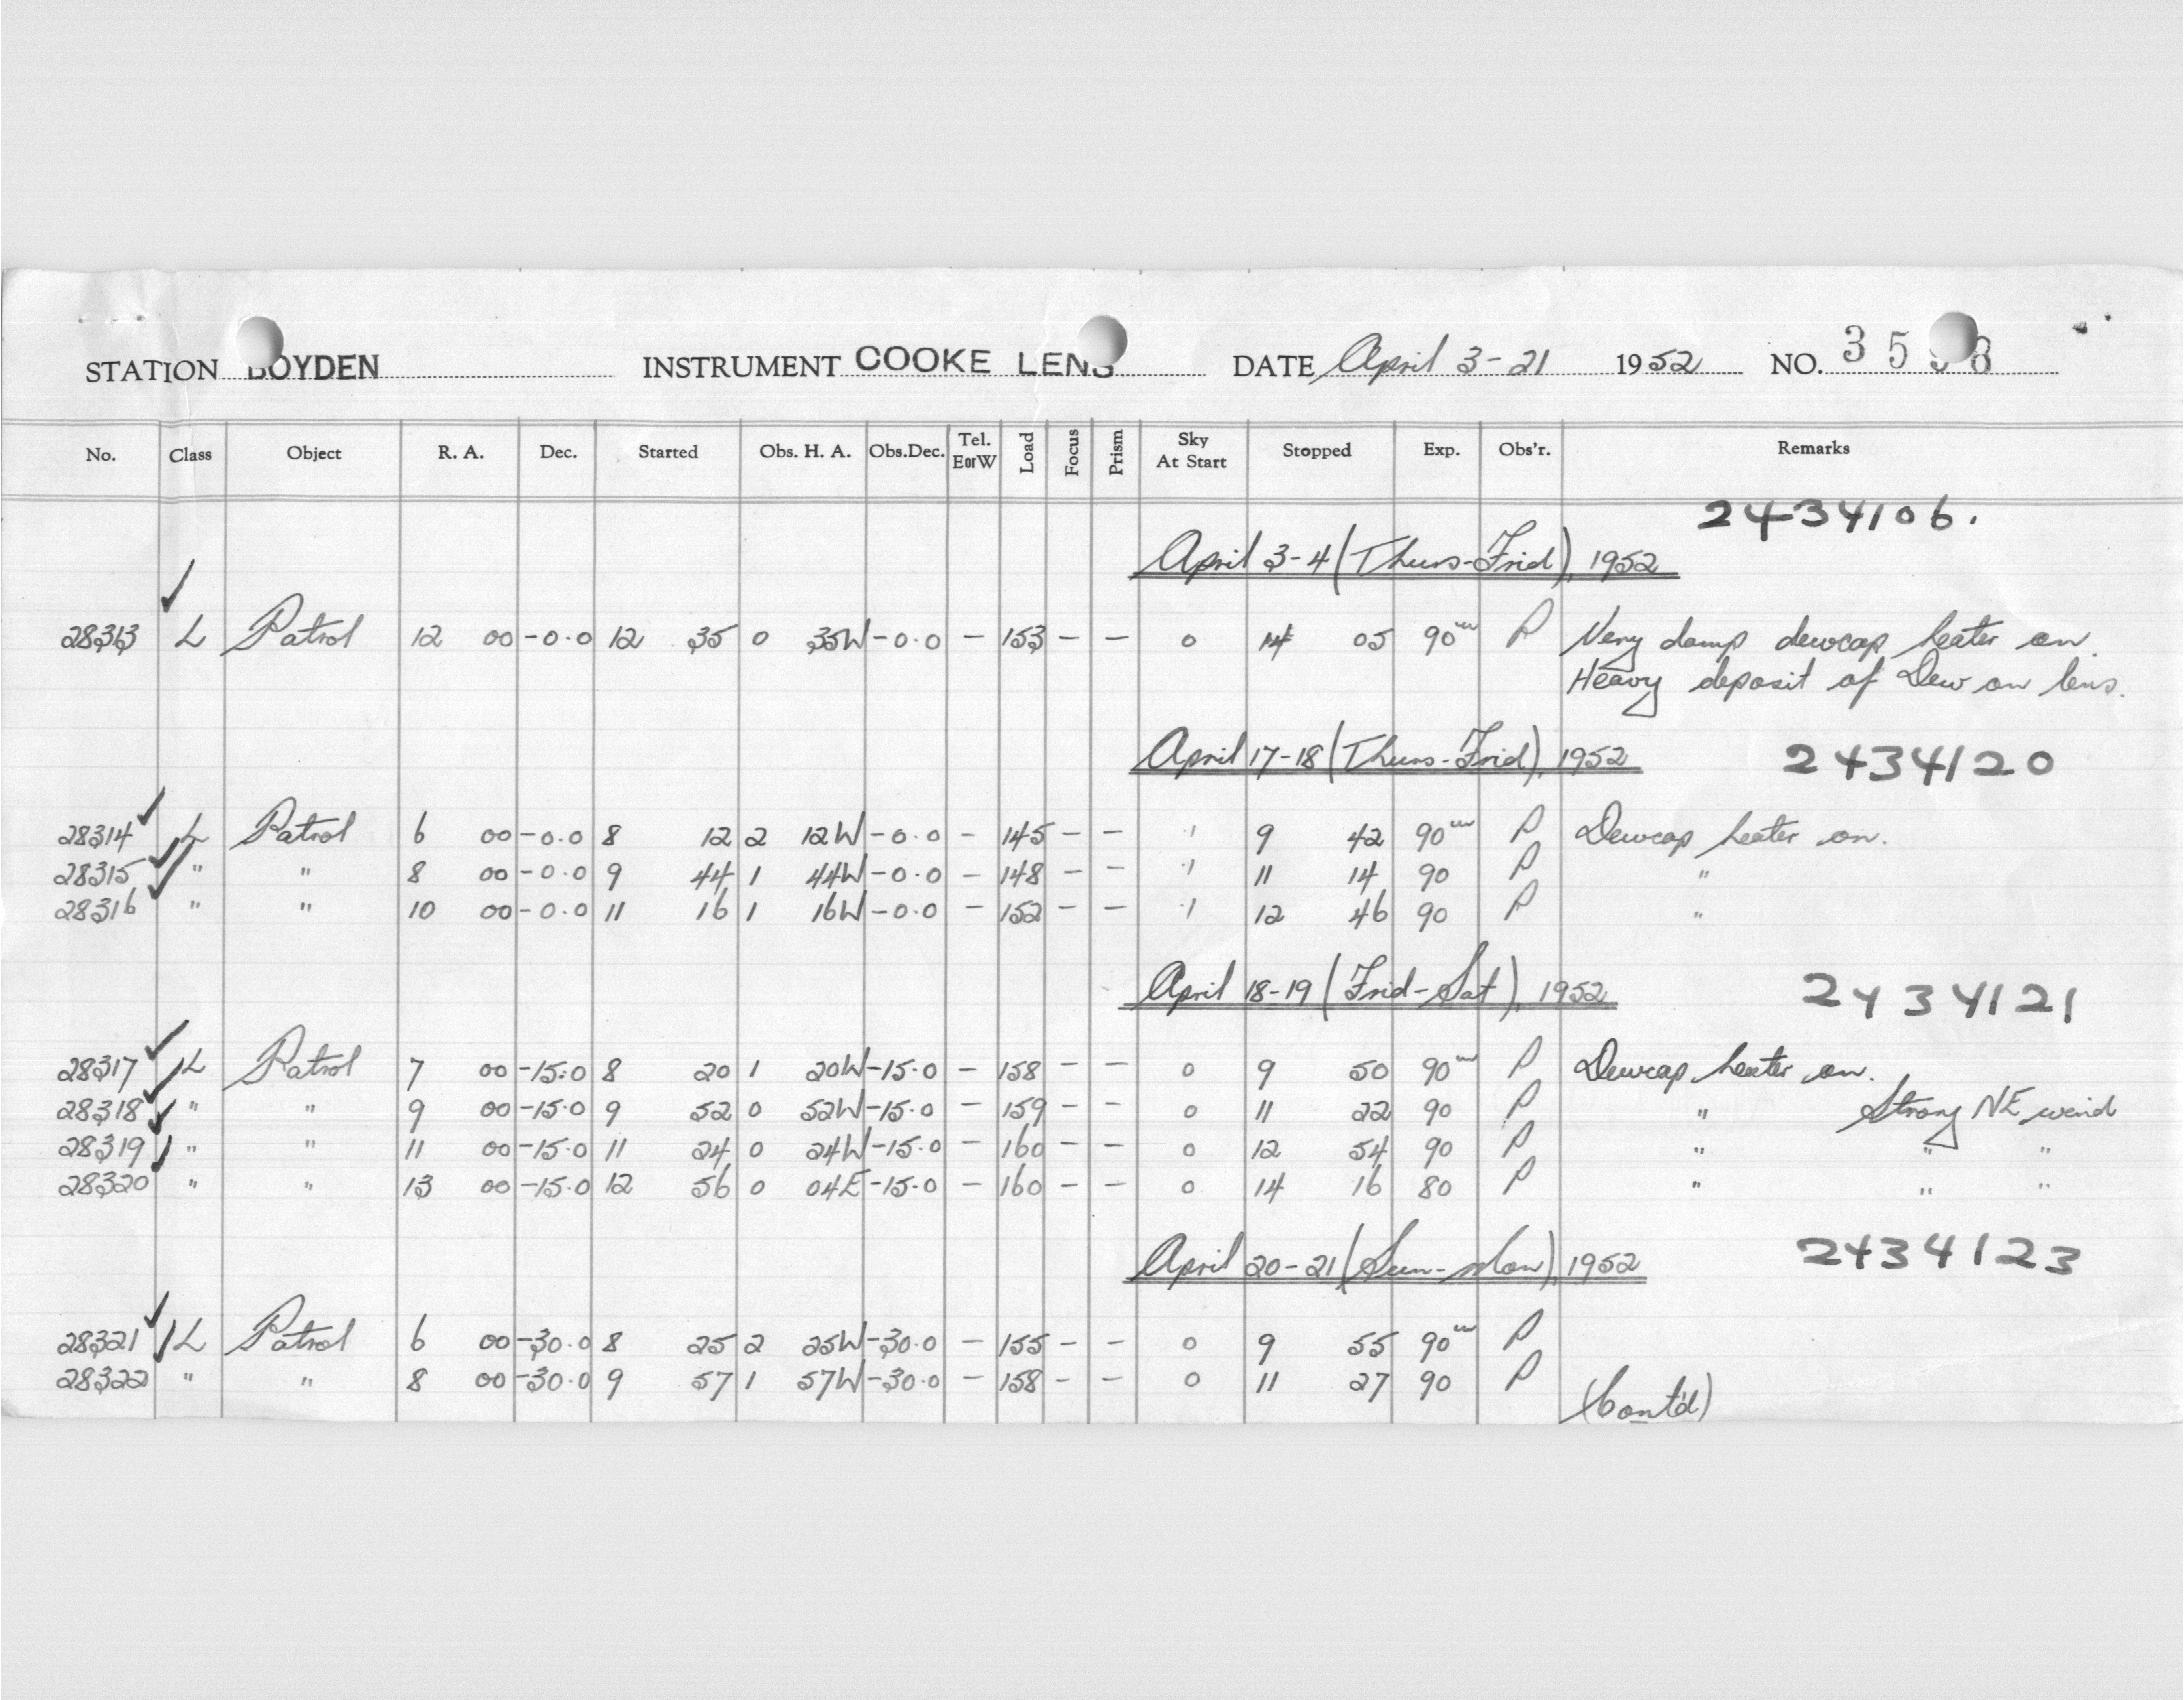 STATION BOYDEN INSTRUMENT COOKE LENS DATE April 3-21 1952 NO. 35
No. Class Object R. A. Dec. Started Obs. H. A. Obs.Dec. Tel. EorW Load Focus Prism Sky At Start Stopped Exp. Obs'r. Remarks
2434106.
April 3-4 (Thurs-Frid), 1952
28313 L Patrol 12 00 -0.0 12 35 0 35W -0.0 - 153 - - 0 14 05 90m P Very damp dewcap heater on.
Heavy deposit of Dew on lens.
April 17-18 (Thurs-Frid), 1952 2434120
28314 L Patrol 6 00 -0.0 8 12 2 12W -0.0 - 145 - - .1 9 42 90m P Dewcap heater on.
28315 " " 8 00 -0.0 9 44 1 44W -0.0 - 148 - - .1 11 14 90 P "
28316 " " 10 00 -0.0 11 16 1 16W -0.0 - 152 - - .1 12 46 90 P "
April 18-19 (Frid-Sat), 1952 2434121
28317 L Patrol 7 00 -15.0 8 20 1 20W -15.0 - 158 - - 0 9 50 90m P Dewcap heater on.
28318 " " 9 00 -15.0 9 52 0 52W -15.0 - 159 - - 0 11 22 90 P " Strong NE wind
28319 " " 11 00 -15.0 11 24 0 24W -15.0 - 160 - - 0 12 54 90 P " " "
28320 " " 13 00 -15.0 12 56 0 04E -15.0 - 160 - - 0 14 16 80 P " " "
April 20-21 (Sun-Mon), 1952 2434123
28321 L Patrol 6 00 -30.0 8 25 2 25W -30.0 - 155 - - 0 9 55 90m P
28322 " " 8 00 -30.0 9 57 1 57W -30.0 - 158 - - 0 11 27 90 P
(Cont'd)